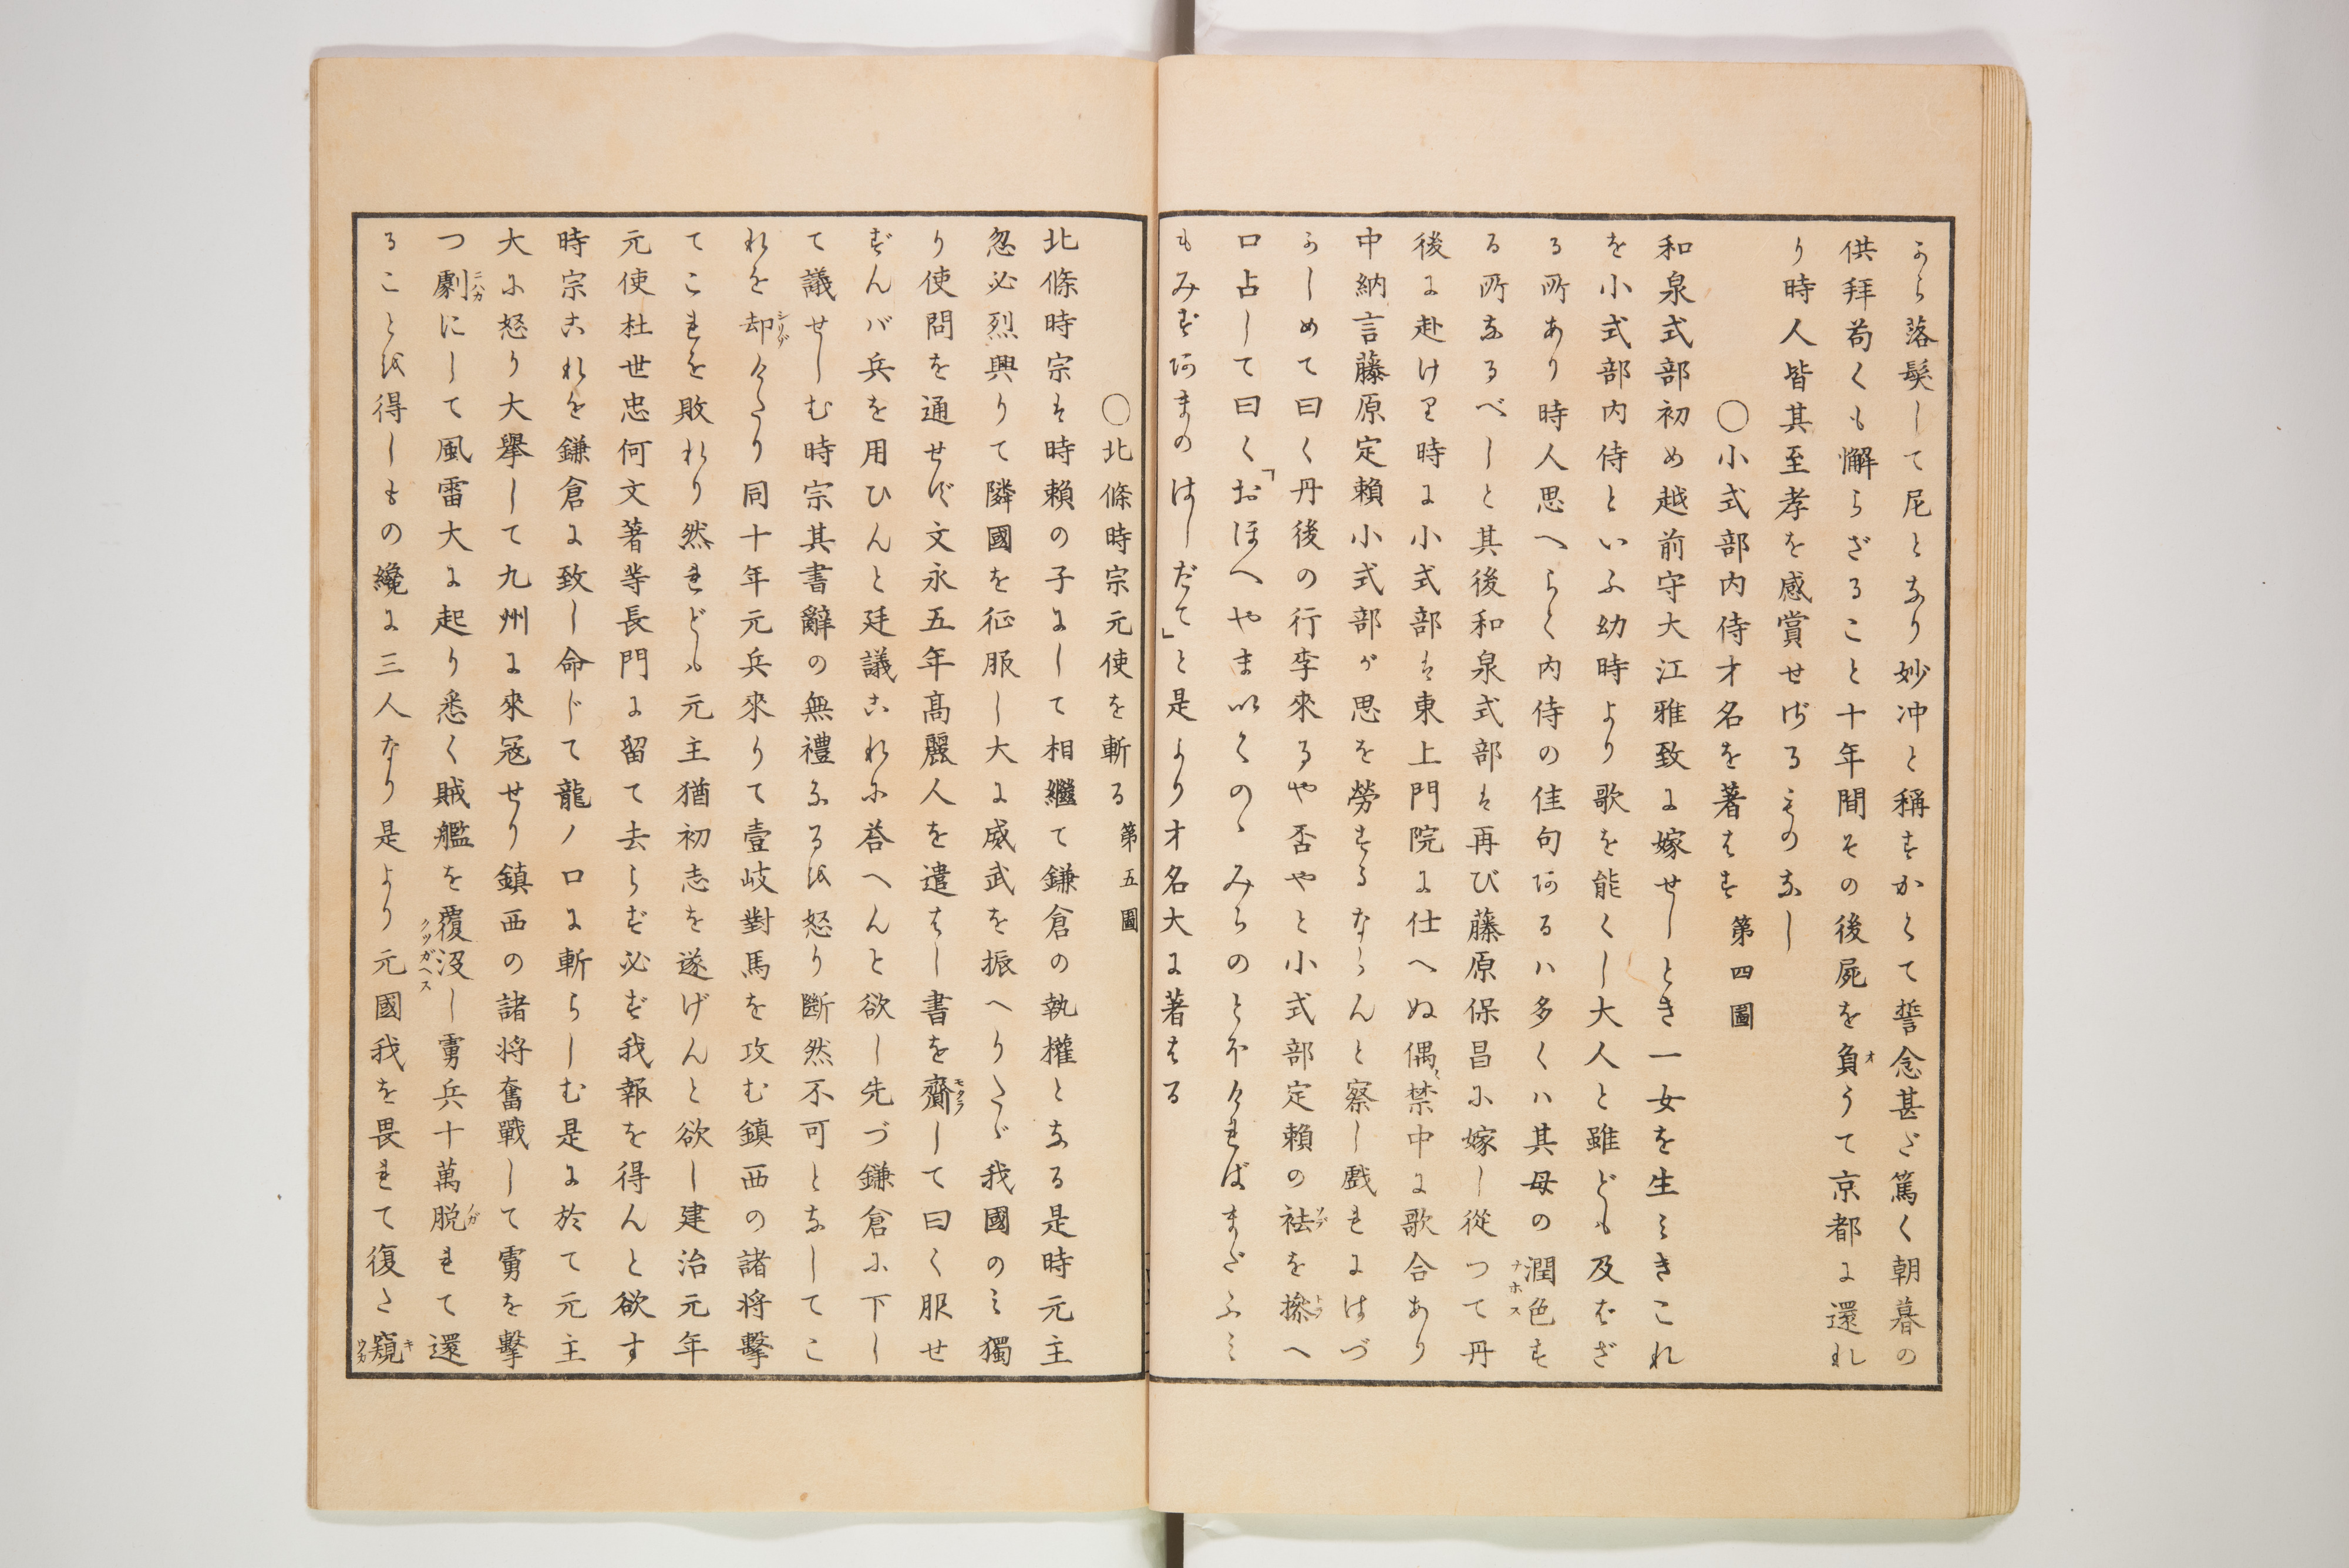 から落髮して尼となり妙冲と稱すかくて誓念甚だ篤く朝暮の
供拜苟くも懈らざること十年間その後屍を負うて京都に還れ
り時人皆其至孝を感賞せざるものなし
〇小式部内侍才名を著はす 第四圖
和泉式部初め越前守大江雅致に嫁せしとき一女を生みきこれ
を小式部内侍といふ幼時より歌を能くし大人と雖ども及ばざ
る所あり時人思へらく内侍の佳句あるハ多くハ其母の潤色す
る所なるべしと其後和泉式部は再び藤原保昌に嫁し從つて丹
後に赴けり時に小式部は東上門院に仕へぬ偶〻禁中に歌合あり
中納言藤原定頼小式部が思を勞するならんと察し戲れにはづ
かしめて曰く丹後の行李來るや否やと小式部定頼の袪を搽へ
口占して曰く「おほへやまいくのゝみちのとほければまだふみ
もみずあまのはしだて」と是より才名大に著はる
〇北條時宗元使を斬る 第五圖
北條時宗は時頼の子にして相繼て鎌倉の執權となる是時元主
忽必烈興りて隣國を征服し大に威武を振へりたゞ我國のみ獨
り使問を通せず文永五年高麗人を遣はし書を齎して曰く服せ
ずんバ兵を用ひんと廷議これに荅へんと欲し先づ鎌倉に下し
て議せしむ時宗其書辭の無禮なるを怒り斷然不可となしてこ
れを却けたり同十年元兵來りて壹岐對馬を攻む鎮西の諸将擊
てこれを敗れり然れども元主猶初志を遂げんと欲し建治元年
元使杜世忠何文著等長門に留て去らず必ず我報を得んと欲す
時宗これを鎌倉に致し命じて龍ノ口に斬らしむ是に於て元主
大に怒り大擧して九州に來寇せり鎮西の諸将奮戰して虜を擊
つ劇にして風雷大に起り悉く賊艦を覆沒し虜兵十萬脱れて還
ることを得しもの纔に三人なり是より元國我を畏れて復た窺